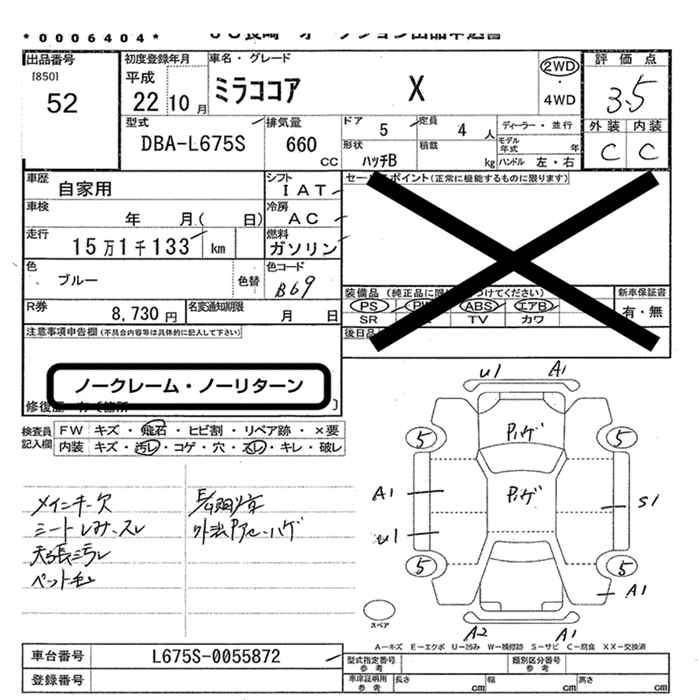 *0006404*
JU長崎 オークション出品申込書
出品番号
[850]
52
初度登録年月
平成
22 10 月
車名・グレード
ミラココア X
2WD
・
4WD
評価点
3.5
外装 内装
C C
型式
DBA-L675S
排気量
660 CC
ドア 5
定員 4 人
形状 ハッチB
積載 kg
ディーラー・並行
モデル年式 年
ハンドル 左・右
車歴
自家用
シフト
IAT
車検
年 月( 日)
冷房
AC
走行
15万1千133 km
燃料
ガソリン
色
ブルー
色替
色コード
B69
R券
8,730 円
名変通知期限
月 日
セールスポイント(正常に機能するものに限ります)
装備品
PS ABS エアB
SR TV カワ
新車保証書
有・無
後日品
注意事項申告欄(不具合内容等は具体的に記入して下さい)
ノークレーム・ノーリターン
検査員記入欄
FW キズ・飛石・ヒビ割・リペア跡・×要
内装 キズ・汚レ・コゲ・穴・スレ・キレ・破レ
メインキー欠
シートしみ、スレ
天張汚レ
ペット毛
外法Pアセ・ハゲ
U1 A1
5 5
Pハゲ
A1
Pハゲ
S1
U1
5 5
A1
スペア
A2 A1
A―キズ E―エクボ U―凹み W―補修跡 S―サビ C―腐食 XX―交換済
車台番号
L675S-0055872
登録番号
型式指定番号 参考
類別区分番号 参考
車庫証明用 参考
長さ cm
幅 cm
高さ cm